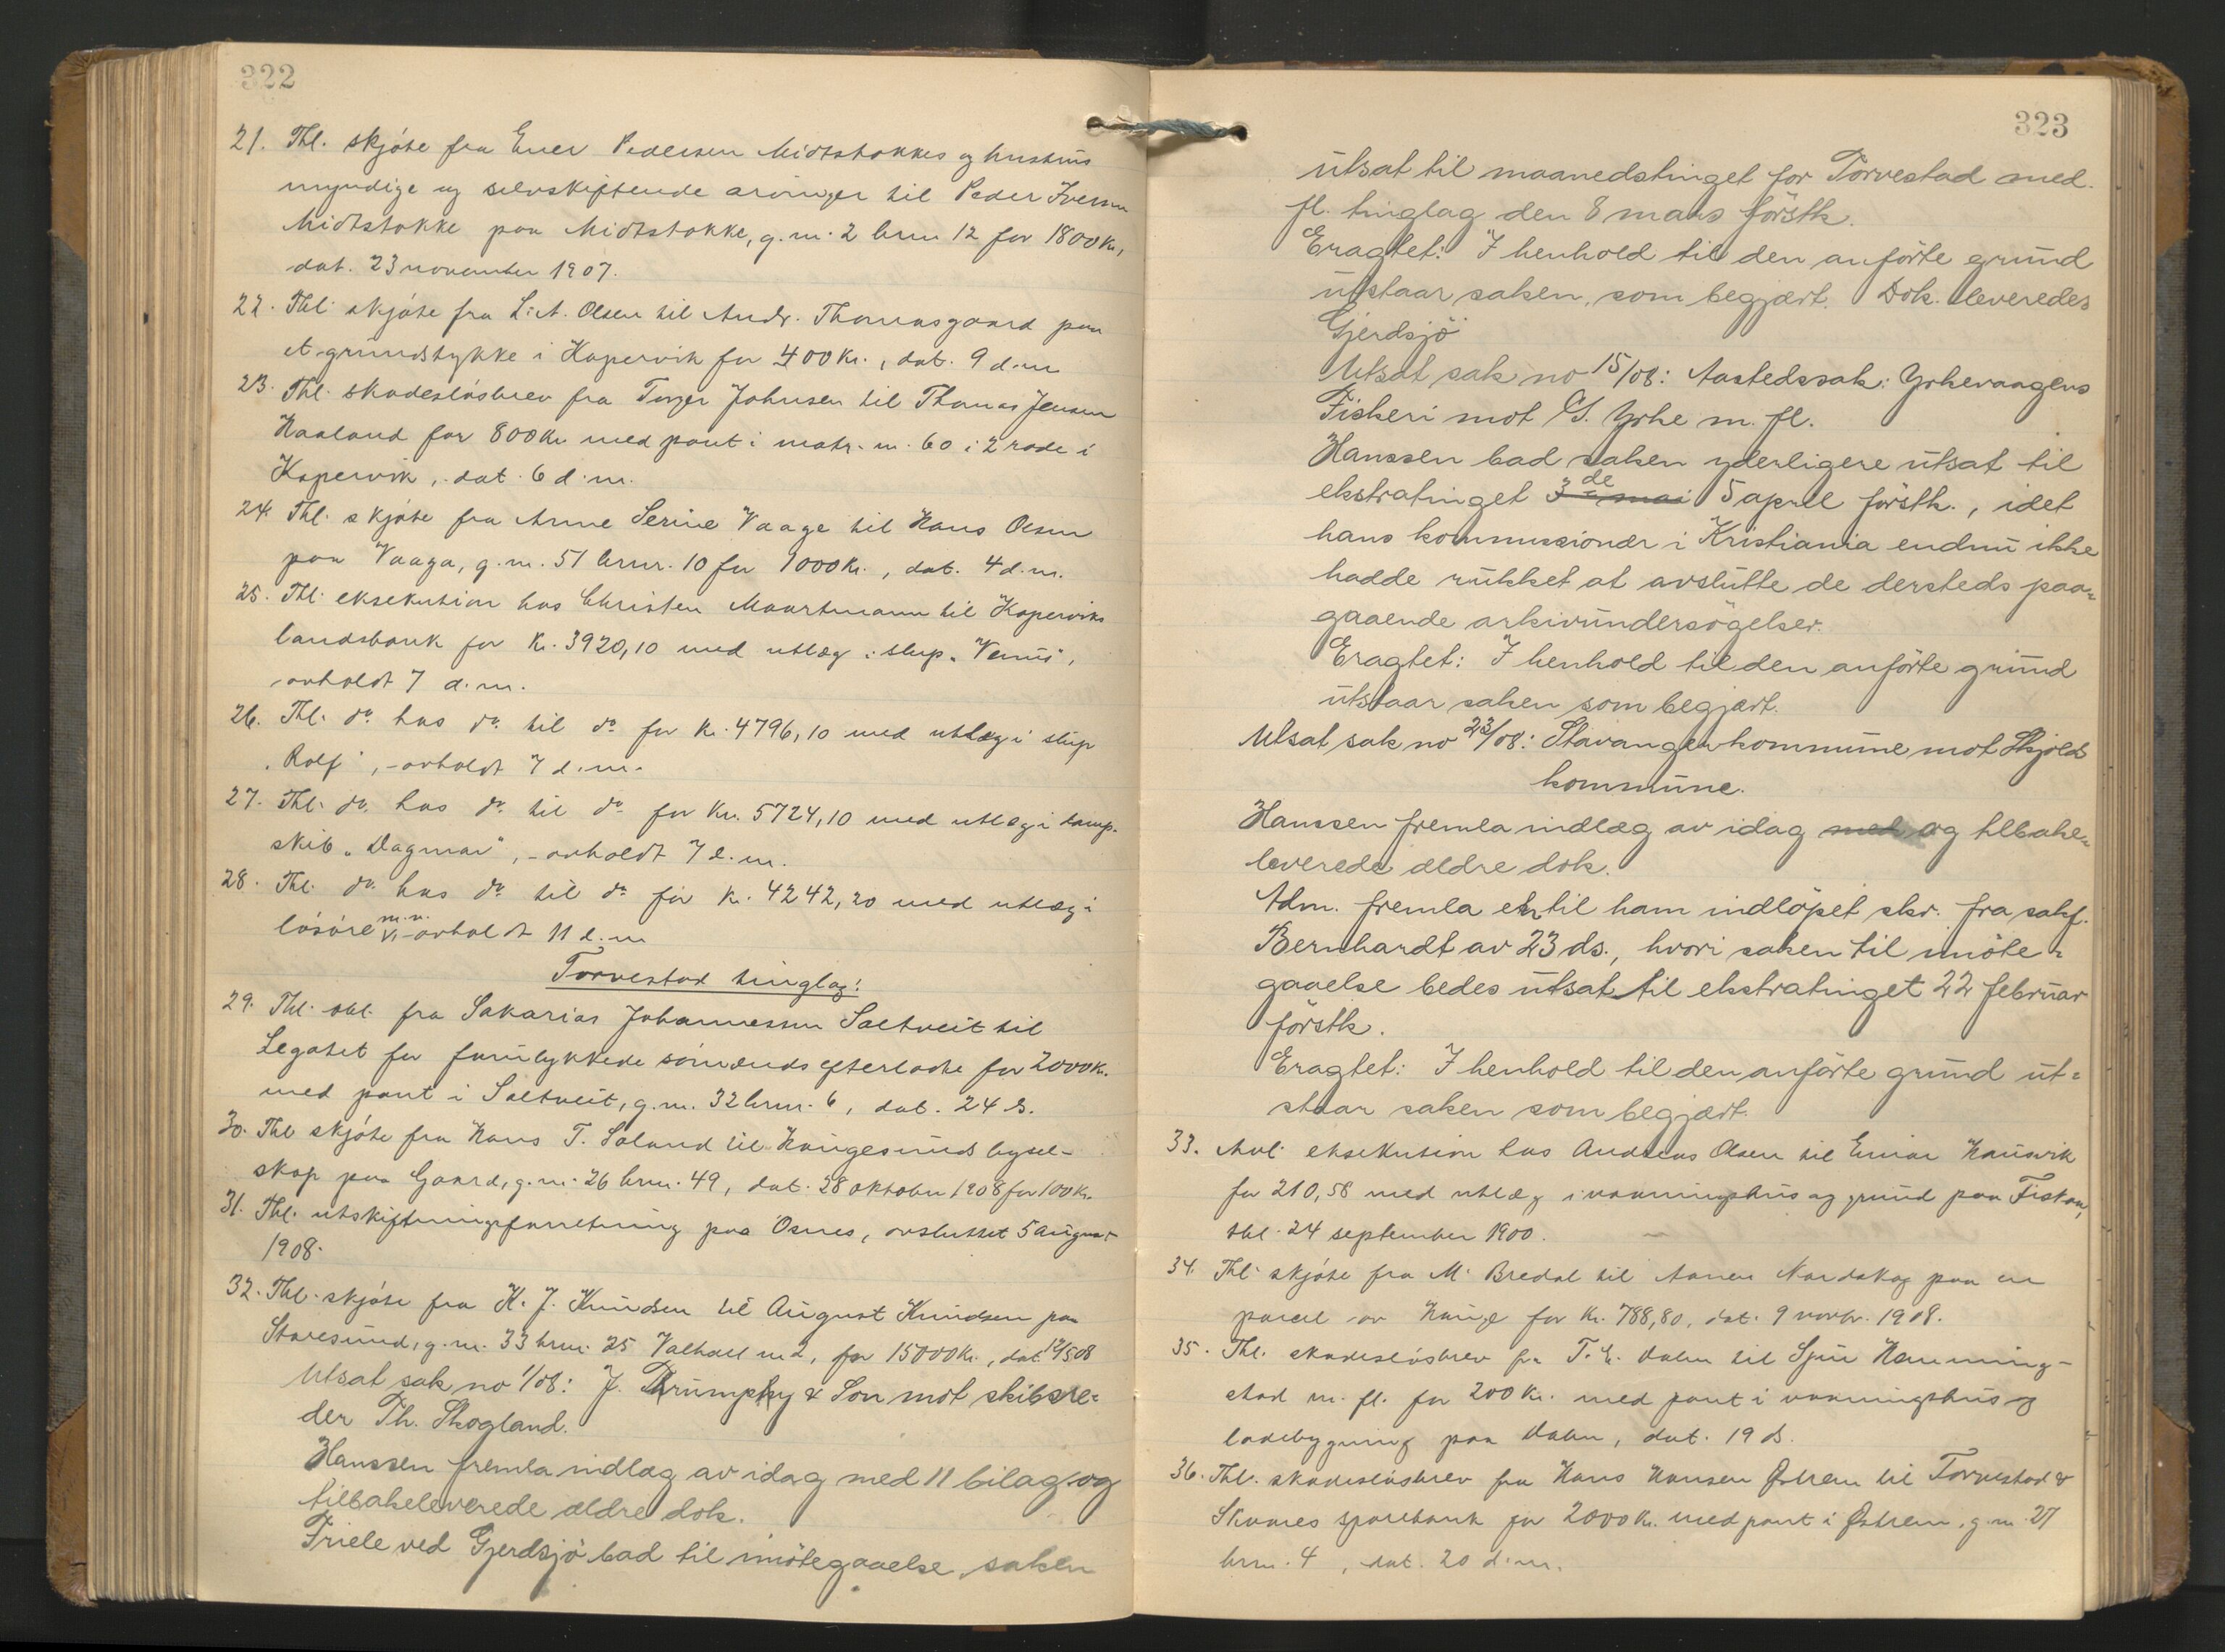 322
21. Thl. skjöte fra Iver Pedersen Midtstokkes og hustrus
myndige og selvskiftende arvinger til Peder Iversen
Midtstokke paa Midtstokke, g.nr. 2 brnr 12 for 1800 Kr,
dat. 23 november 1907.
22. Thl. skjöte fra L. A. Olsen til Andr. Thomasgaard paa
et grundstykke i Kopervik for 400 Kr., dat. 9 d.m
23. Thl. skadeslösbrev fra Torger Johnsen til Thomas Jensen
Haaland for 800 Kr med pant i matr. nr. 60 i 2 rode i
Kopervik, dat. 6 d.m.
24. Thl. skjöte fra Anne Serine Vaage til Hans Olsen
paa Vaaga, g.nr. 51 brnr. 10 for 1000 Kr., dat. 4 d.m.
25. Thl. eksekution hos Christen Maartmann til Koperviks
landsbank for Kr. 3920,10 med utlæg i slup „Venus",
avholdt 7 d.m.
26. Thl. do hos do til do for Kr. 4796,10 med utlæg i slup
„Rolf", - avholdt 7 d.m.
27. Thl. do hos do til do for Kr. 5724,10 med utlæg i damp-
skib „Dagmar", - avholdt 7 d.m.
28. Thl. do hos do til do for Kr. 4242,20 med utlæg i
lösöre m.v. avholdt 11 d.m
Torvestad tinglag:
29. Thl. obl. fra Sakarias Johannessen Saltveit til
Legatet for forulykkede sömænds efterladte for 2000 Kr.
med pant i Saltveit, g.nr. 32 brnr. 6, dat. 24 ds.
30. Thl skjöte fra Hans T. Soland til Haugesunds bysel-
skap paa Gaard, g.nr. 26 brnr. 49, dat. 28 oktober 1908 for 100 Kr.
31. Thl. utskiftningsforretning paa Osnes, avsluttet 5 august
1908.
32. Thl. skjöte fra K. J. Knudsen til August Knudsen paa
Storesund, g.nr. 33 brnr. 25 Valhall nr 2, for 15000 Kr., dat.
Utsat sak no 1/08: J. Trumpy & Son mot skibsre=
der Th. Skogland.
Hanssen fremla indlæg av idag med 11 bilag og
tilbakeleverede ældre dok.
Friele ved Gjerdsjö bad til imötegaaelse saken
323
utsat til maanedstinget for Torvestad med.
fl. tinglag den 8 mars förstk.
Eragtet: I henhold til den anförte grund
utstaar saken, som begjært. Dok. leveredes
Gjerdsjö
Utsat sak no 15/08: Aastedssak: Yrkevaagens
Fiskeri mot G. Yrke m. fl.
Hanssen bad saken yderligere utsat til
ekstratinget 3de mai 5 april förstk., idet
hans kommissionær i Kristiania endnu ikke
hadde rukket at avslutte de dersteds paa=
gaaende arkivundersögelser.
Eragtet: I henhold til den anförte grund
utstaar saken som begjært.
Utsat sak no 23/08: Stavanger kommune mot Skjold
kommune.
Hanssen fremla indlæg av idag med og tilbake=
leverede ældre dok.
Adm. fremla en til ham indlöpet skr. fra sakf.
Bernhardt av 23 ds., hvori saken til imöte=
gaaelse bedes utsat til ekstratinget 22 februar
förstk.
Eragtet: I henhold til den anförte grund ut=
staar saken som begjært.
33. Avl. eksekution hos Andreas Olsen til Einar Hausvik
for 210,58 med utlæg i vaaningshus og grund paa Fiskaa,
thl. 24 september 1900.
34. Thl. skjöte fra M. Bredal til Aanen Nordskog paa en
parcel av Hauge for Kr. 788,80, dat. 9 novbr. 1908.
35. Thl. skadeslösbrev fra T. E. Dalen til Hemming-
stad m. fl. for 200 Kr. med pant i vaaningshus og
ladebygning paa Dalen, dat. 19 ds.
36. Thl. skadeslösbrev fra Hans Hansen Østrem til Torvestad &
Skaares sparebank for 2000 Kr. med pant i Østrem, g.nr. 27
brnr. 4, dat. 20 d.m.